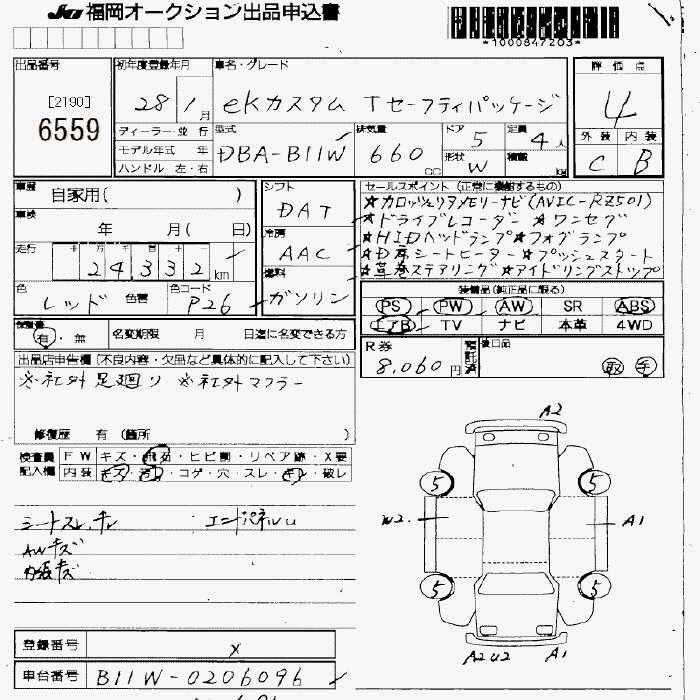 JU 福岡オークション出品申込書
*1000847203*
出品番号
[2190]
6559
初年度登録年月
28 1 月
車名・グレード
eKカスタム Tセーフティパッケージ
評価点
4
外装 内装
C B
ディーラー・並行
モデル年式 年
ハンドル 左・右
型式
DBA-B11W
排気量
660 CC
ドア
5
形状
W
定員
4 人
積載
kg
車歴
自家用( )
車検
年 月( 日)
走行
十万千百十
24,332 km
色
レッド
色替
色コード
P26
シフト
DAT
冷房
AAC
燃料
ガソリン
セールスポイント (正常に機能するもの)
★カロッツェリアメモリーナビ(AVIC-RZ501)
★ドライブレコーダー ★ワンセグ
★HIDヘッドランプ★フォグランプ
★D席シートヒーター ★プッシュスタート
★革巻ステアリング★アイドリングストップ
装備品(純正品に限る)
PS PW AW SR ABS
エアB TV ナビ 本革 4WD
保証書
有・無
名変期限 月 日迄に名変できる方
R券
8,060 円
預託済
後日品
取 手
出品店申告欄 (不良内容・欠品など具体的に記入して下さい)
※社外足廻り ※社外マフラー
修復歴 有 (箇所 )
検査員
記入欄
FW キズ・飛石・ヒビ割・リペア跡・X要
内装 キズ・汚れ・コゲ・穴・スレ・キレ・破レ
シートスレ、キレ エンドパネルU
AWキズ
内張キズ
A2
5 5
W2 A1
5 5
A2U2 A1
登録番号 X
車台番号 B11W-0206096